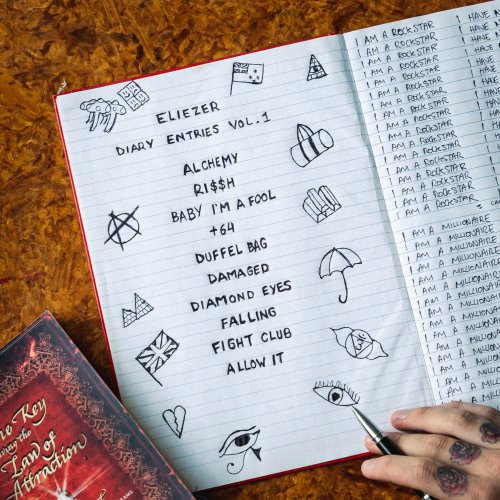 ELIEZER
DIARY ENTRIES VOL. 1
ALCHEMY
RI$$H
BABY I'M A FOOL
+64
DUFFEL BAG
DAMAGED
DIAMOND EYES
FALLING
FIGHT CLUB
ALLOW IT
I AM A ROCKSTAR
I AM A ROCKSTAR
I AM A ROCKSTAR
I AM A ROCKSTAR
I AM A ROCKSTAR
I AM A ROCKSTAR
I AM A ROCKSTAR
I AM A ROCKSTAR
I AM A ROCKSTAR
I AM A ROCKSTAR
I AM A ROCKSTAR
I AM A ROCKSTAR
I AM A ROCKSTAR
I AM A ROCKSTAR
I AM A ROCKSTAR
I AM A ROCKSTAR
I AM A MILLIONAIRE
I AM A MILLIONAIRE
I AM A MILLIONAIRE
I AM A MILLIONAIRE
I AM A MILLIONAIRE
I AM A MILLIONAIRE
I AM A MILLIONAIRE
I AM A MILLIONAIRE
I AM A MILLIONAIRE
I AM A MILLIONAIRE
I AM A MILLIONAIRE
I HAVE
I HAVE
I HAVE
I HAVE
I HAVE
I HAVE
I HAVE
I HAVE
I HAVE
I HAVE
Key
Law of
Attraction